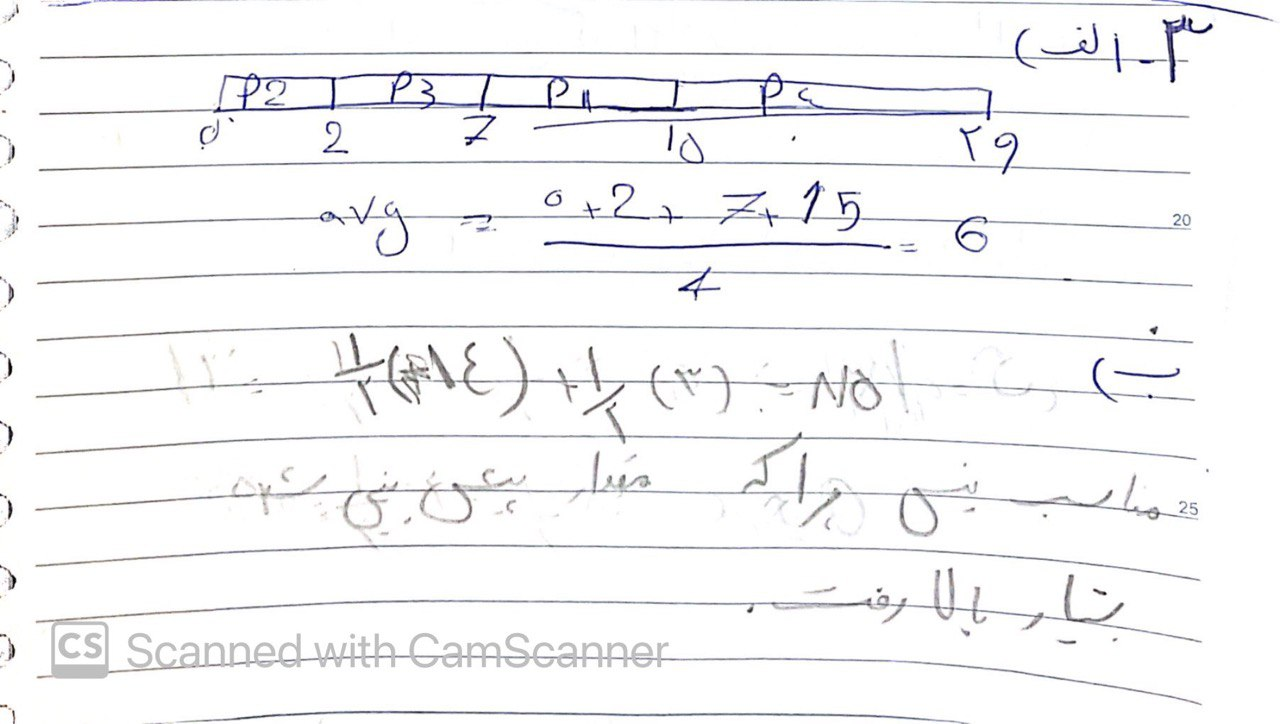 ۳- الف)
P2 P3 P1 P4
0 2 7 15 ۲۹
avg = 0+2+7+15 / 4 = 6
20
ب) 1/۲ (۱٤) + 1/۲ (۳) = ۸٫۵
مناسب نیس چراکه مقدار پیش بینی شده
25
بسیار بالا رفت.
CS Scanned with CamScanner